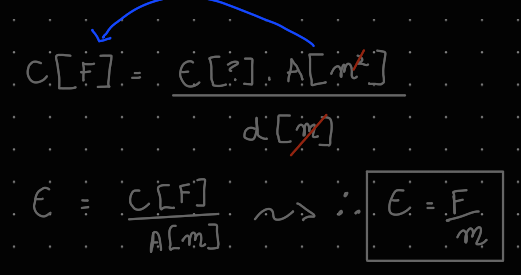 C[F] = ϵ[?] . A[m²]
d[m]
ϵ = C[F] / A[m] ~> ∴ ϵ = F / m